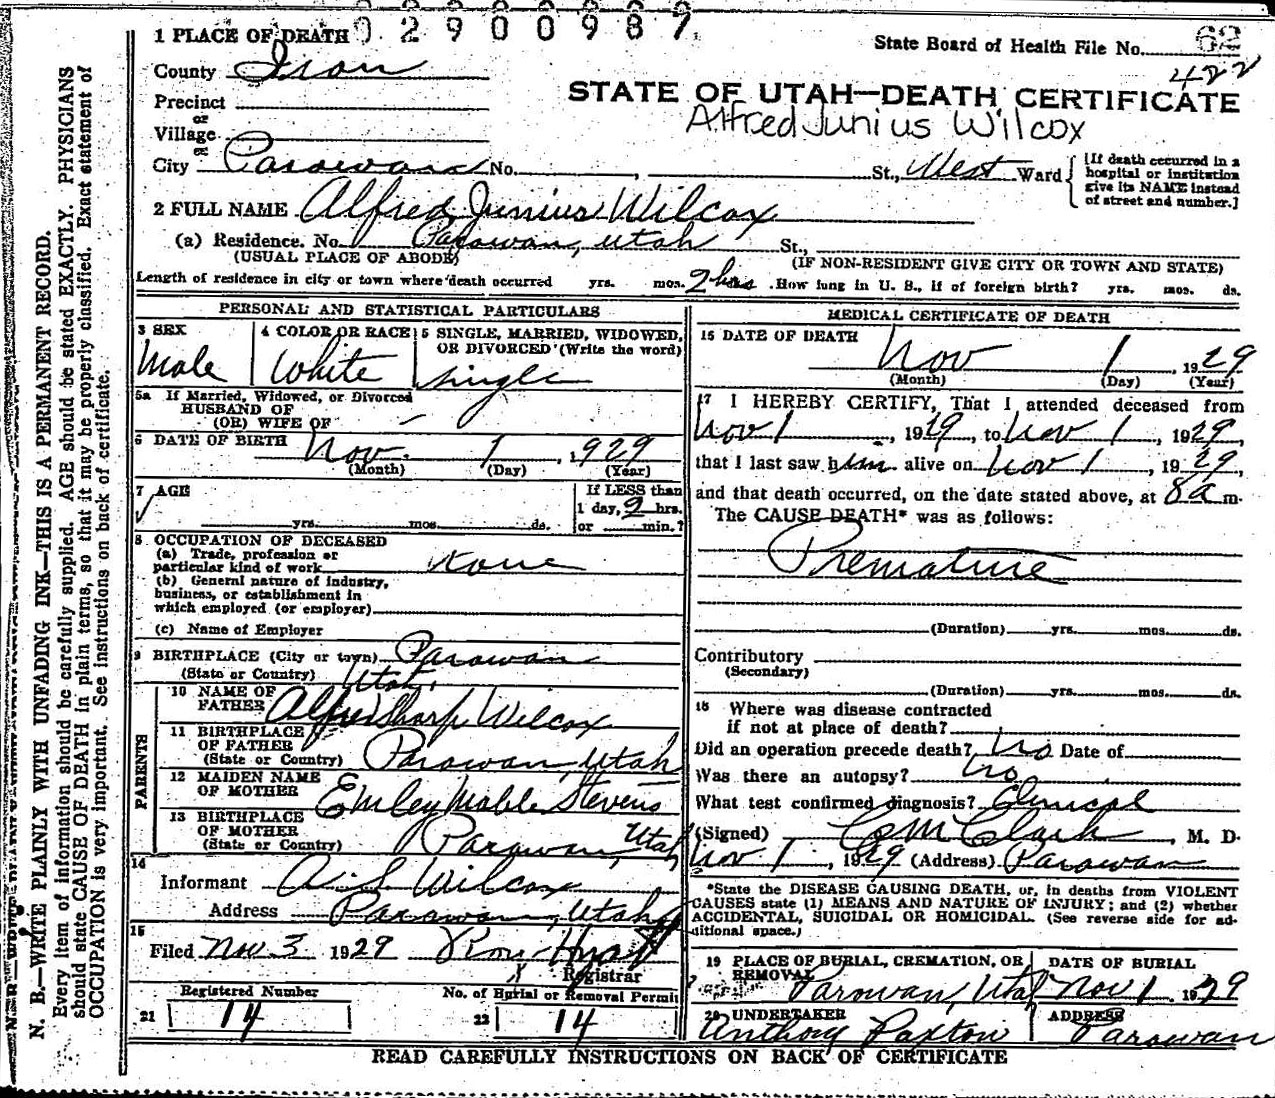 02900987
1 PLACE OF DEATH
State Board of Health File No. 62
422
County Iron
STATE OF UTAH—DEATH CERTIFICATE
Precinct
or
Alfred Junius Wilcox
Village
or
City Parowan No. , St., West Ward
[If death occurred in a
hospital or institution
give its NAME instead
of street and number.]
2 FULL NAME Alfred Junius Wilcox
(a) Residence. No. Parowan, Utah St.,
(USUAL PLACE OF ABODE)
(IF NON-RESIDENT GIVE CITY OR TOWN AND STATE)
Length of residence in city or town where death occurred yrs. mos. 2 hrs ds. How long in U. S., if of foreign birth? yrs. mos. ds.
PERSONAL AND STATISTICAL PARTICULARS
3 SEX
Male
4 COLOR OR RACE
White
5 SINGLE, MARRIED, WIDOWED,
OR DIVORCED (Write the word)
Single
5a If Married, Widowed, or Divorced
HUSBAND OF
(OR) WIFE OF –
6 DATE OF BIRTH Nov. 1, 1929
(Month) (Day) (Year)
7 AGE
yrs. mos. ds.
If LESS than
1 day, 2 hrs.
or min.?
8 OCCUPATION OF DECEASED
(a) Trade, profession or
particular kind of work none
(b) General nature of industry,
business, or establishment in
which employed (or employer)
(c) Name of Employer
9 BIRTHPLACE (City or town) Parowan
(State or Country) Utah.
PARENTS
10 NAME OF
FATHER Alfred Sharp Wilcox
11 BIRTHPLACE
OF FATHER
(State or Country) Parowan, Utah
12 MAIDEN NAME
OF MOTHER Emley Mable Stevens
13 BIRTHPLACE
OF MOTHER
(State or Country) Parowan, Utah
14
Informant A. S. Wilcox
Address Parowan, Utah
15
Filed Nov 3 1929
Registrar
Registered Number
21 14
No. of Burial or Removal Permit
22 14
MEDICAL CERTIFICATE OF DEATH
16 DATE OF DEATH
Nov 1, 1929
(Month) (Day) (Year)
17 I HEREBY CERTIFY, That I attended deceased from
Nov 1, 1929, to Nov 1, 1929,
that I last saw him alive on Nov 1, 1929,
and that death occurred, on the date stated above, at 8 a m.
The CAUSE DEATH* was as follows:
Premature
(Duration) yrs. mos. ds.
Contributory
(Secondary)
(Duration) yrs. mos. ds.
18 Where was disease contracted
if not at place of death?
Did an operation precede death? no Date of
Was there an autopsy? no
What test confirmed diagnosis? Clinical
(Signed) Clark, M. D.
Nov 1, 1929 (Address) Parowan
*State the DISEASE CAUSING DEATH, or, in deaths from VIOLENT
CAUSES state (1) MEANS AND NATURE OF INJURY; and (2) whether
ACCIDENTAL, SUICIDAL OR HOMICIDAL. (See reverse side for ad-
ditional space.)
19 PLACE OF BURIAL, CREMATION, OR
REMOVAL
Parowan, Utah
DATE OF BURIAL
Nov 1 1929
20 UNDERTAKER
Anthony Paxton
ADDRESS
Parowan
READ CAREFULLY INSTRUCTIONS ON BACK OF CERTIFICATE
N. B.—WRITE PLAINLY WITH UNFADING INK—THIS IS A PERMANENT RECORD.
Every item of information should be carefully supplied. AGE should be stated EXACTLY. PHYSICIANS
should state CAUSE OF DEATH in plain terms, so that it may be properly classified. Exact statement of
OCCUPATION is very important. See instructions on back of certificate.